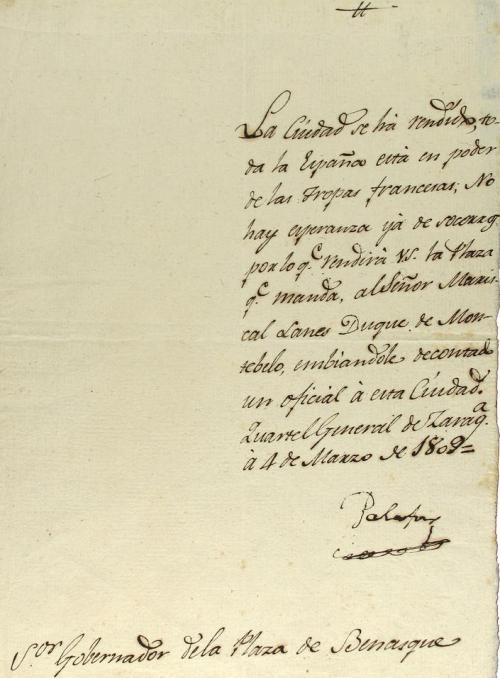 La Ciudad se há rendido, to-
da la España està en poder
de las tropas francesas; No
hay esperanza yà de socorro,
por lo q.e rendirà V.S. la Plaza
q.e manda, al Señor Maris-
cal Lanes Duque de Mon-
tebelo, embiandole decontado
un oficial à esta Ciudad.
Quartel General de Zarag.a
à 4 de Marzo de 1809=
Palafox
S.or Gobernador de la Plaza de Benasque